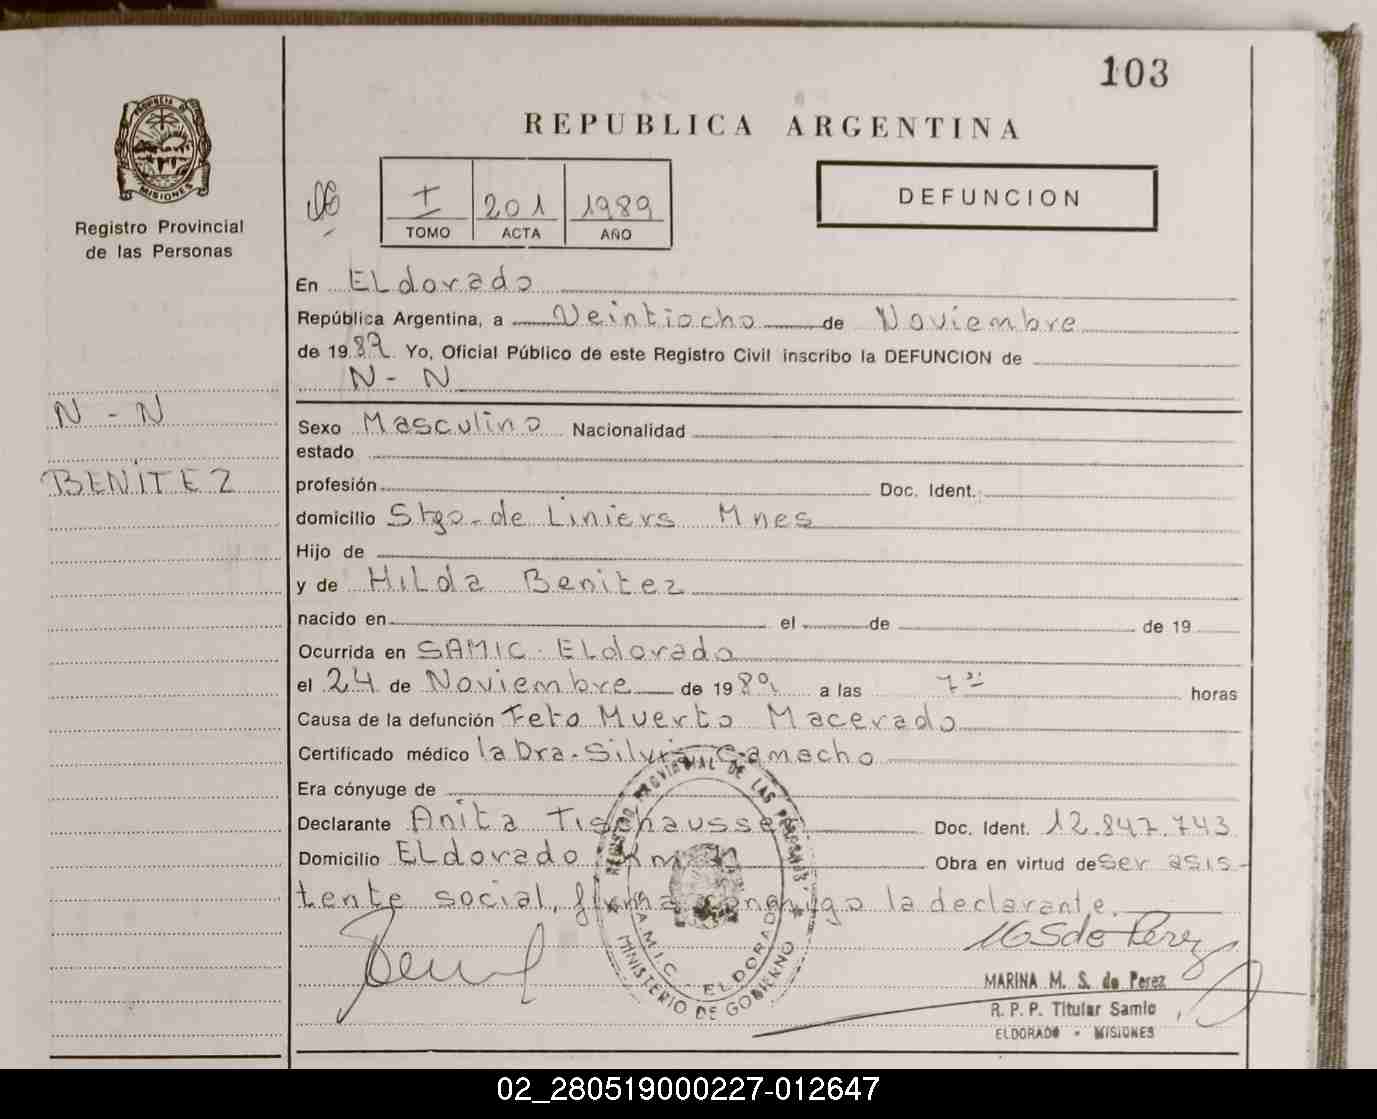 103
PROVINCIA DE
MISIONES
Registro Provincial
de las Personas
REPUBLICA ARGENTINA
I 201 1989
TOMO ACTA AÑO
DEFUNCION
En ELdorado
República Argentina, a Veintiocho de Noviembre
de 1989 Yo, Oficial Público de este Registro Civil inscribo la DEFUNCION de
N - N
N - N
BENITEZ
Sexo Masculino Nacionalidad
estado
profesión Doc. Ident.
domicilio Stgo. de Liniers Mnes
Hijo de
y de HiLda Benitez
nacido en el de de 19
Ocurrida en SAMIC. ELdorado
el 24 de Noviembre de 1989 a las 7 horas
Causa de la defunción Feto Muerto Macerado
Certificado médico la Dra. Silvia Camacho
Era cónyuge de
Declarante Anita Doc. Ident. 12.847.743
Domicilio ELdorado Obra en virtud de ser asis-
tente social, firma conmigo la declarante.
REGISTRO PROVINCIAL DE LAS PERSONAS
S.A.M.I.C. ELDORADO
MINISTERIO DE GOBIERNO
MARINA M. S. de Perez
R. P. P. Titular Samic
ELDORADO - MISIONES
02_280519000227-012647